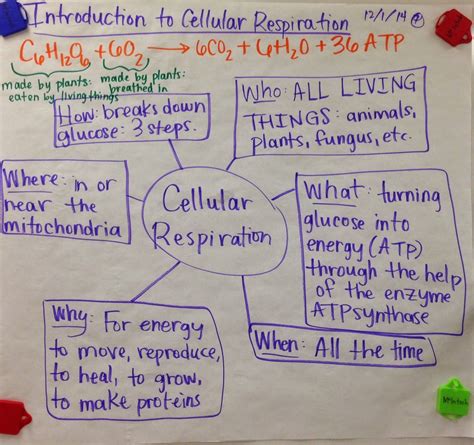 Introduction to Cellular Respiration 12/1/14
C6H12O6 + 6O2 → 6CO2 + 6H2O + 36 ATP
made by plants:
eaten by living things
made by plants:
breathed in
How: breaks down
glucose: 3 steps.
Who: ALL LIVING
THINGS: animals,
plants, fungus, etc.
Where: in or
near the
mitochondria
Cellular
Respiration
What: turning
glucose into
energy (ATP)
through the help
of the enzyme
ATPsynthase
Why: For energy
to move, reproduce,
to heal, to grow,
to make proteins
When: All the time